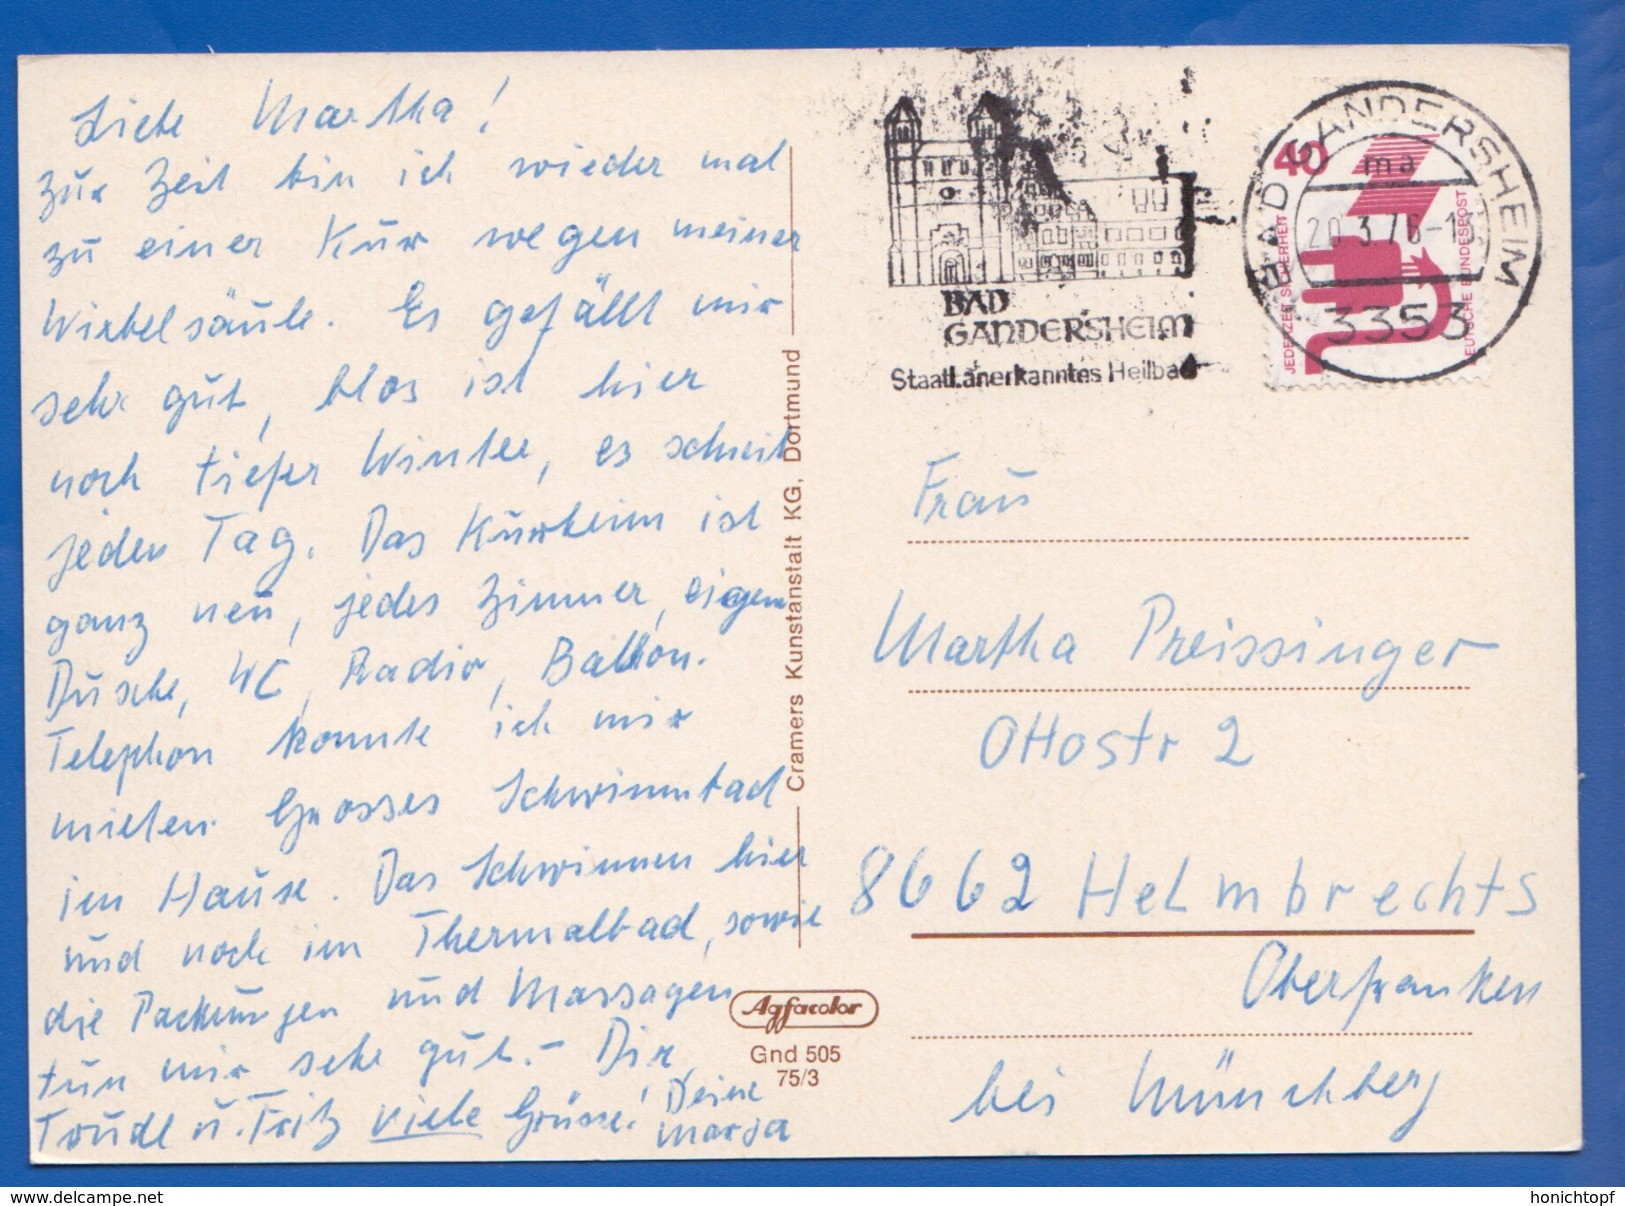 Liebe Martha!
zur Zeit bin ich wieder mal
zu einer Kur wegen meiner
Wirbelsäule. Es gefällt mir
sehr gut, blos ist hier
noch tiefer Winter, es schneit
jeden Tag. Das Kurheim ist
ganz neu, jedes Zimmer, eigene
Dusche, WC, Radio, Balkon.
Telephon konnte ich mir
mieten. Grosses Schwimmbad
im Hause. Das Schwimmen hier
und noch im Thermalbad, sowie
die Packungen und Massagen
tun mir sehr gut.- Dir
Trudl u. Fritz viele Grüsse! Deine
Marja
Cramers Kunstanstalt KG, Dortmund
Agfacolor
Gnd 505
75/3
BAD
GANDERSHEIM
Staatl. anerkanntes Heilbad
BAD GANDERSHEIM
ma
20.3.76-1
3353
40
JEDERZEIT SICHERHEIT
DEUTSCHE BUNDESPOST
Frau
Martha Preissinger
Ottostr 2
8662 Helmbrechts
Oberfranken
bei Münchberg
www.delcampe.net
honichtopf